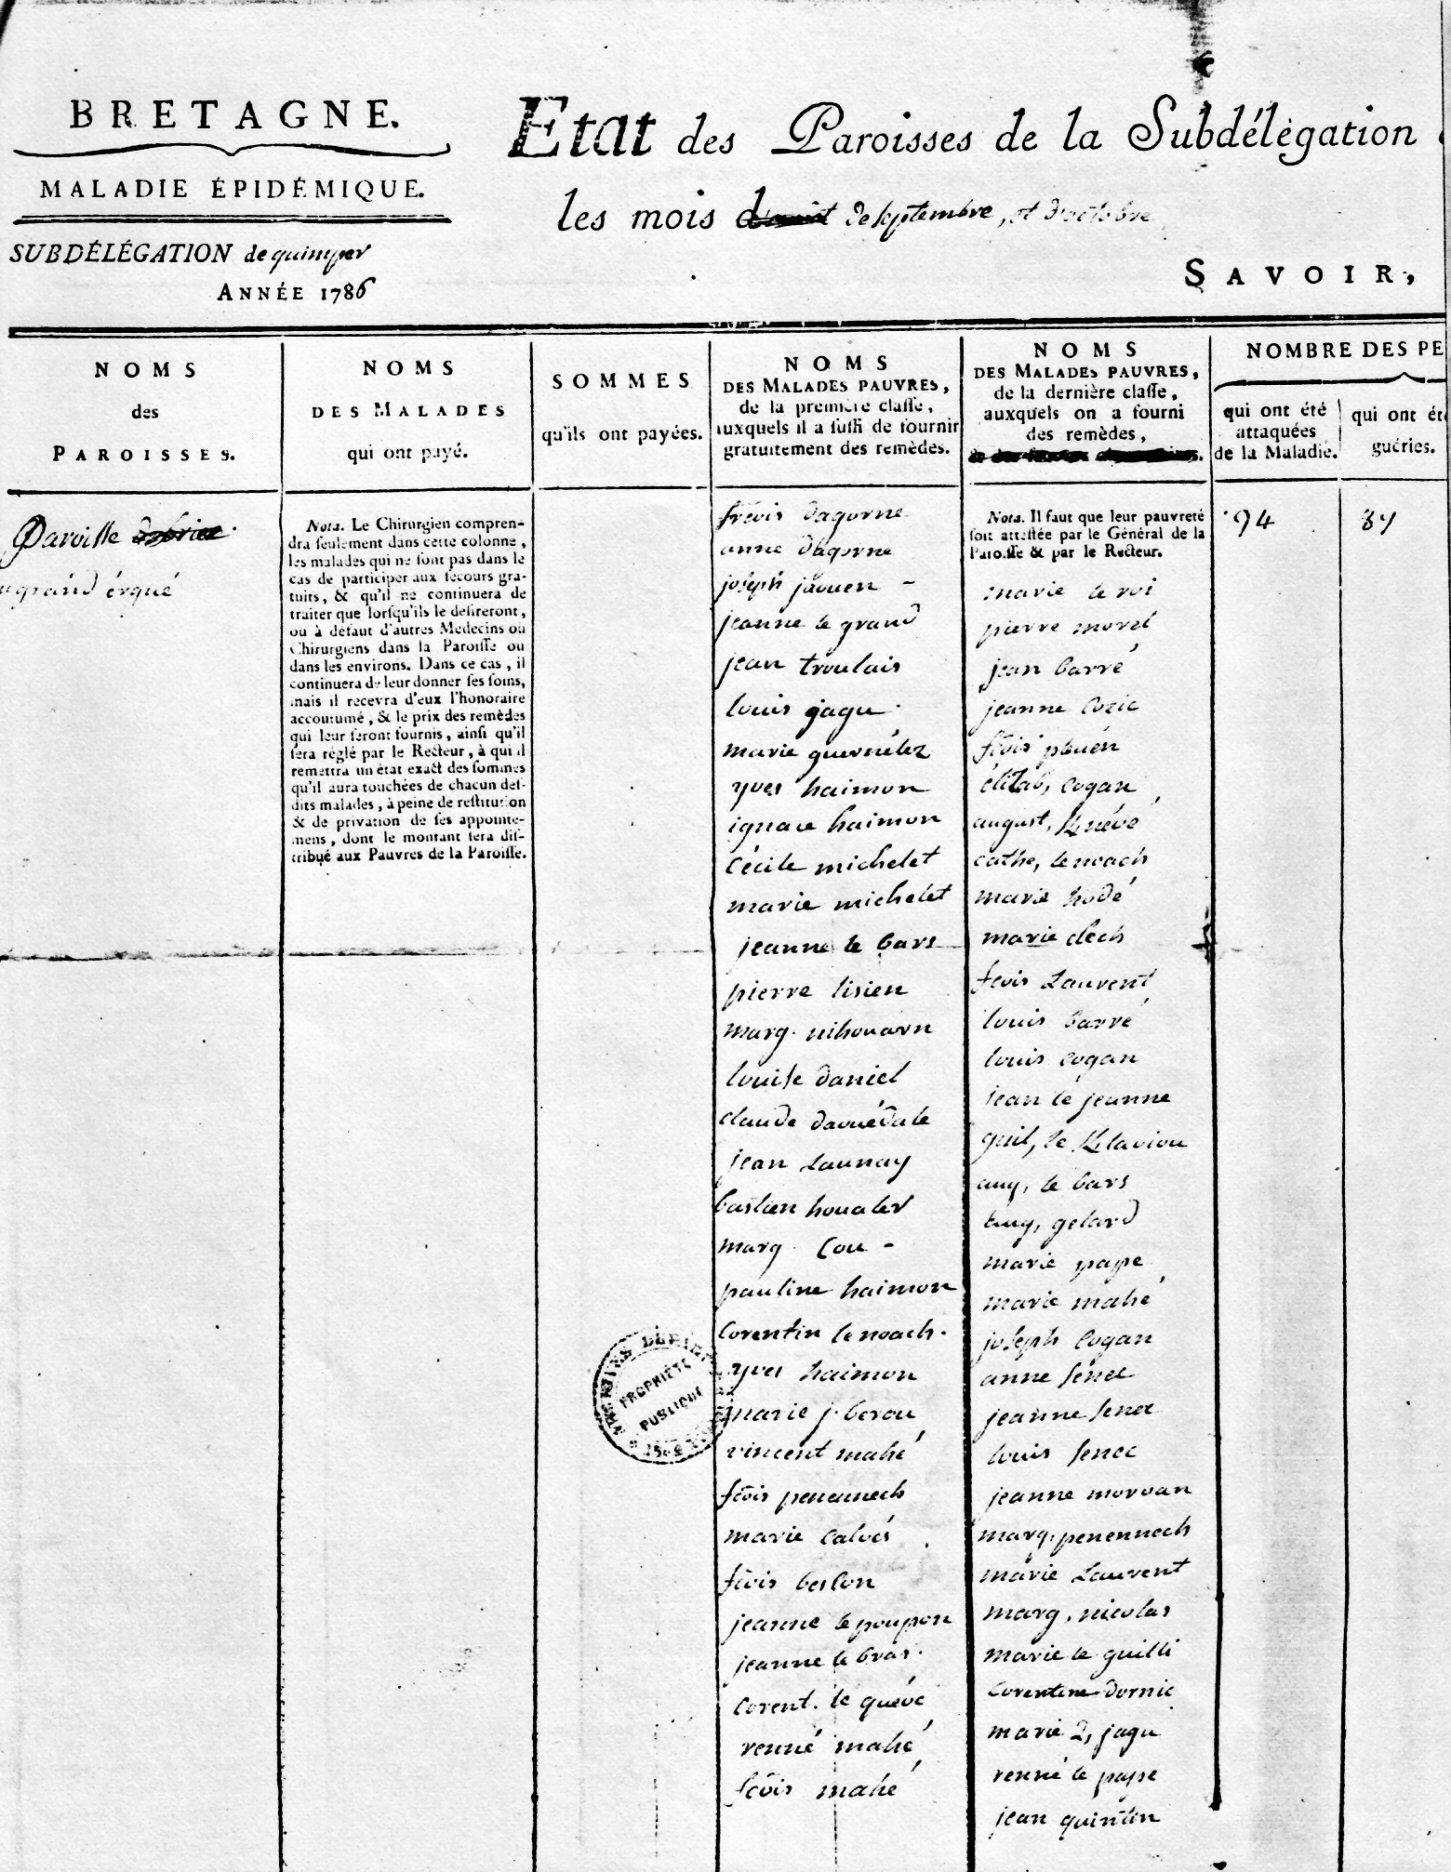 BRETAGNE.
MALADIE ÉPIDÉMIQUE.
SUBDÉLÉGATION de quimper
ANNÉE 1786
Etat des Paroisses de la Subdélégation
les mois de septembre, et d'octobre
SAVOIR,
NOMS
des
PAROISSES.
NOMS
DES MALADES
qui ont payé.
SOMMES
qu'ils ont payées.
NOMS
DES MALADES PAUVRES,
de la premiere classe,
auxquels il a suffi de fournir
gratuitement des remèdes.
NOMS
DES MALADES PAUVRES,
de la dernière classe,
auxquels on a fourni
des remèdes,
NOMBRE DES PE
qui ont été
attaquées
de la Maladie.
qui ont été
guéries.
Paroisse
grand érgué
Nota. Le Chirurgien compren-
dra seulement dans cette colonne,
les malades qui ne sont pas dans le
cas de participer aux secours gra-
tuits, & qu'il ne continuera de
traiter que lorsqu'ils le desireront,
ou à défaut d'autres Medecins ou
Chirurgiens dans la Paroisse ou
dans les environs. Dans ce cas, il
continuera de leur donner ses soins,
mais il recevra d'eux l'honoraire
accoutumé, & le prix des remèdes
qui leur seront fournis, ainsi qu'il
sera réglé par le Recteur, à qui il
remettra un état exact des sommes
qu'il aura touchées de chacun des-
dits malades, à peine de restitution
& de privation de ses appointe-
mens, dont le montant sera dis-
tribué aux Pauvres de la Paroisse.
frcois dagorne
anne dagorne
joseph jaouen -
jeanne le grand
jean troulais
louis jagu.
marie guernélez
yves haimon
ignace haimon
Cécile michelet
marie michelet
jeanne le bars
pierre lisien
marg. nihouarn
louise daniel
claude daouédale
jean Launay
bastien houaler
marg. Cou -
pauline haimon
Corentin le noach.
yves haimon
marie j. berou
vincent mahé
fcois penannech
marie calvés
fcois berlon
jeanne le poupon
jeanne le bras.
Corent. le quévé
renné mahé
fcois mahé
Nota. Il faut que leur pauvreté
soit attestée par le Général de la
Paroisse & par le Recteur.
marie le roi
pierre morel
jean barré
jeanne Cozic
fcois pluén
élizab, cogan
august, Knévé
cathe, le noach
marie hodé
marie clech
fcois Laurent
louis barré
louis cogan
jean le jeanne
guil, le Klaviou
aug, le bars
tug, gelard
marie pape
marie mahé
joseph Cogan
anne senec
jeanne senec
louis senec
jeanne morvan
marg, penennech
marie Laurent
marg, nicolas
marie le guilli
Corentine dornic
marie 2, jagu
renné le pape
jean quintin
94
87
PROPRIÉTÉ
PUBLIQUE